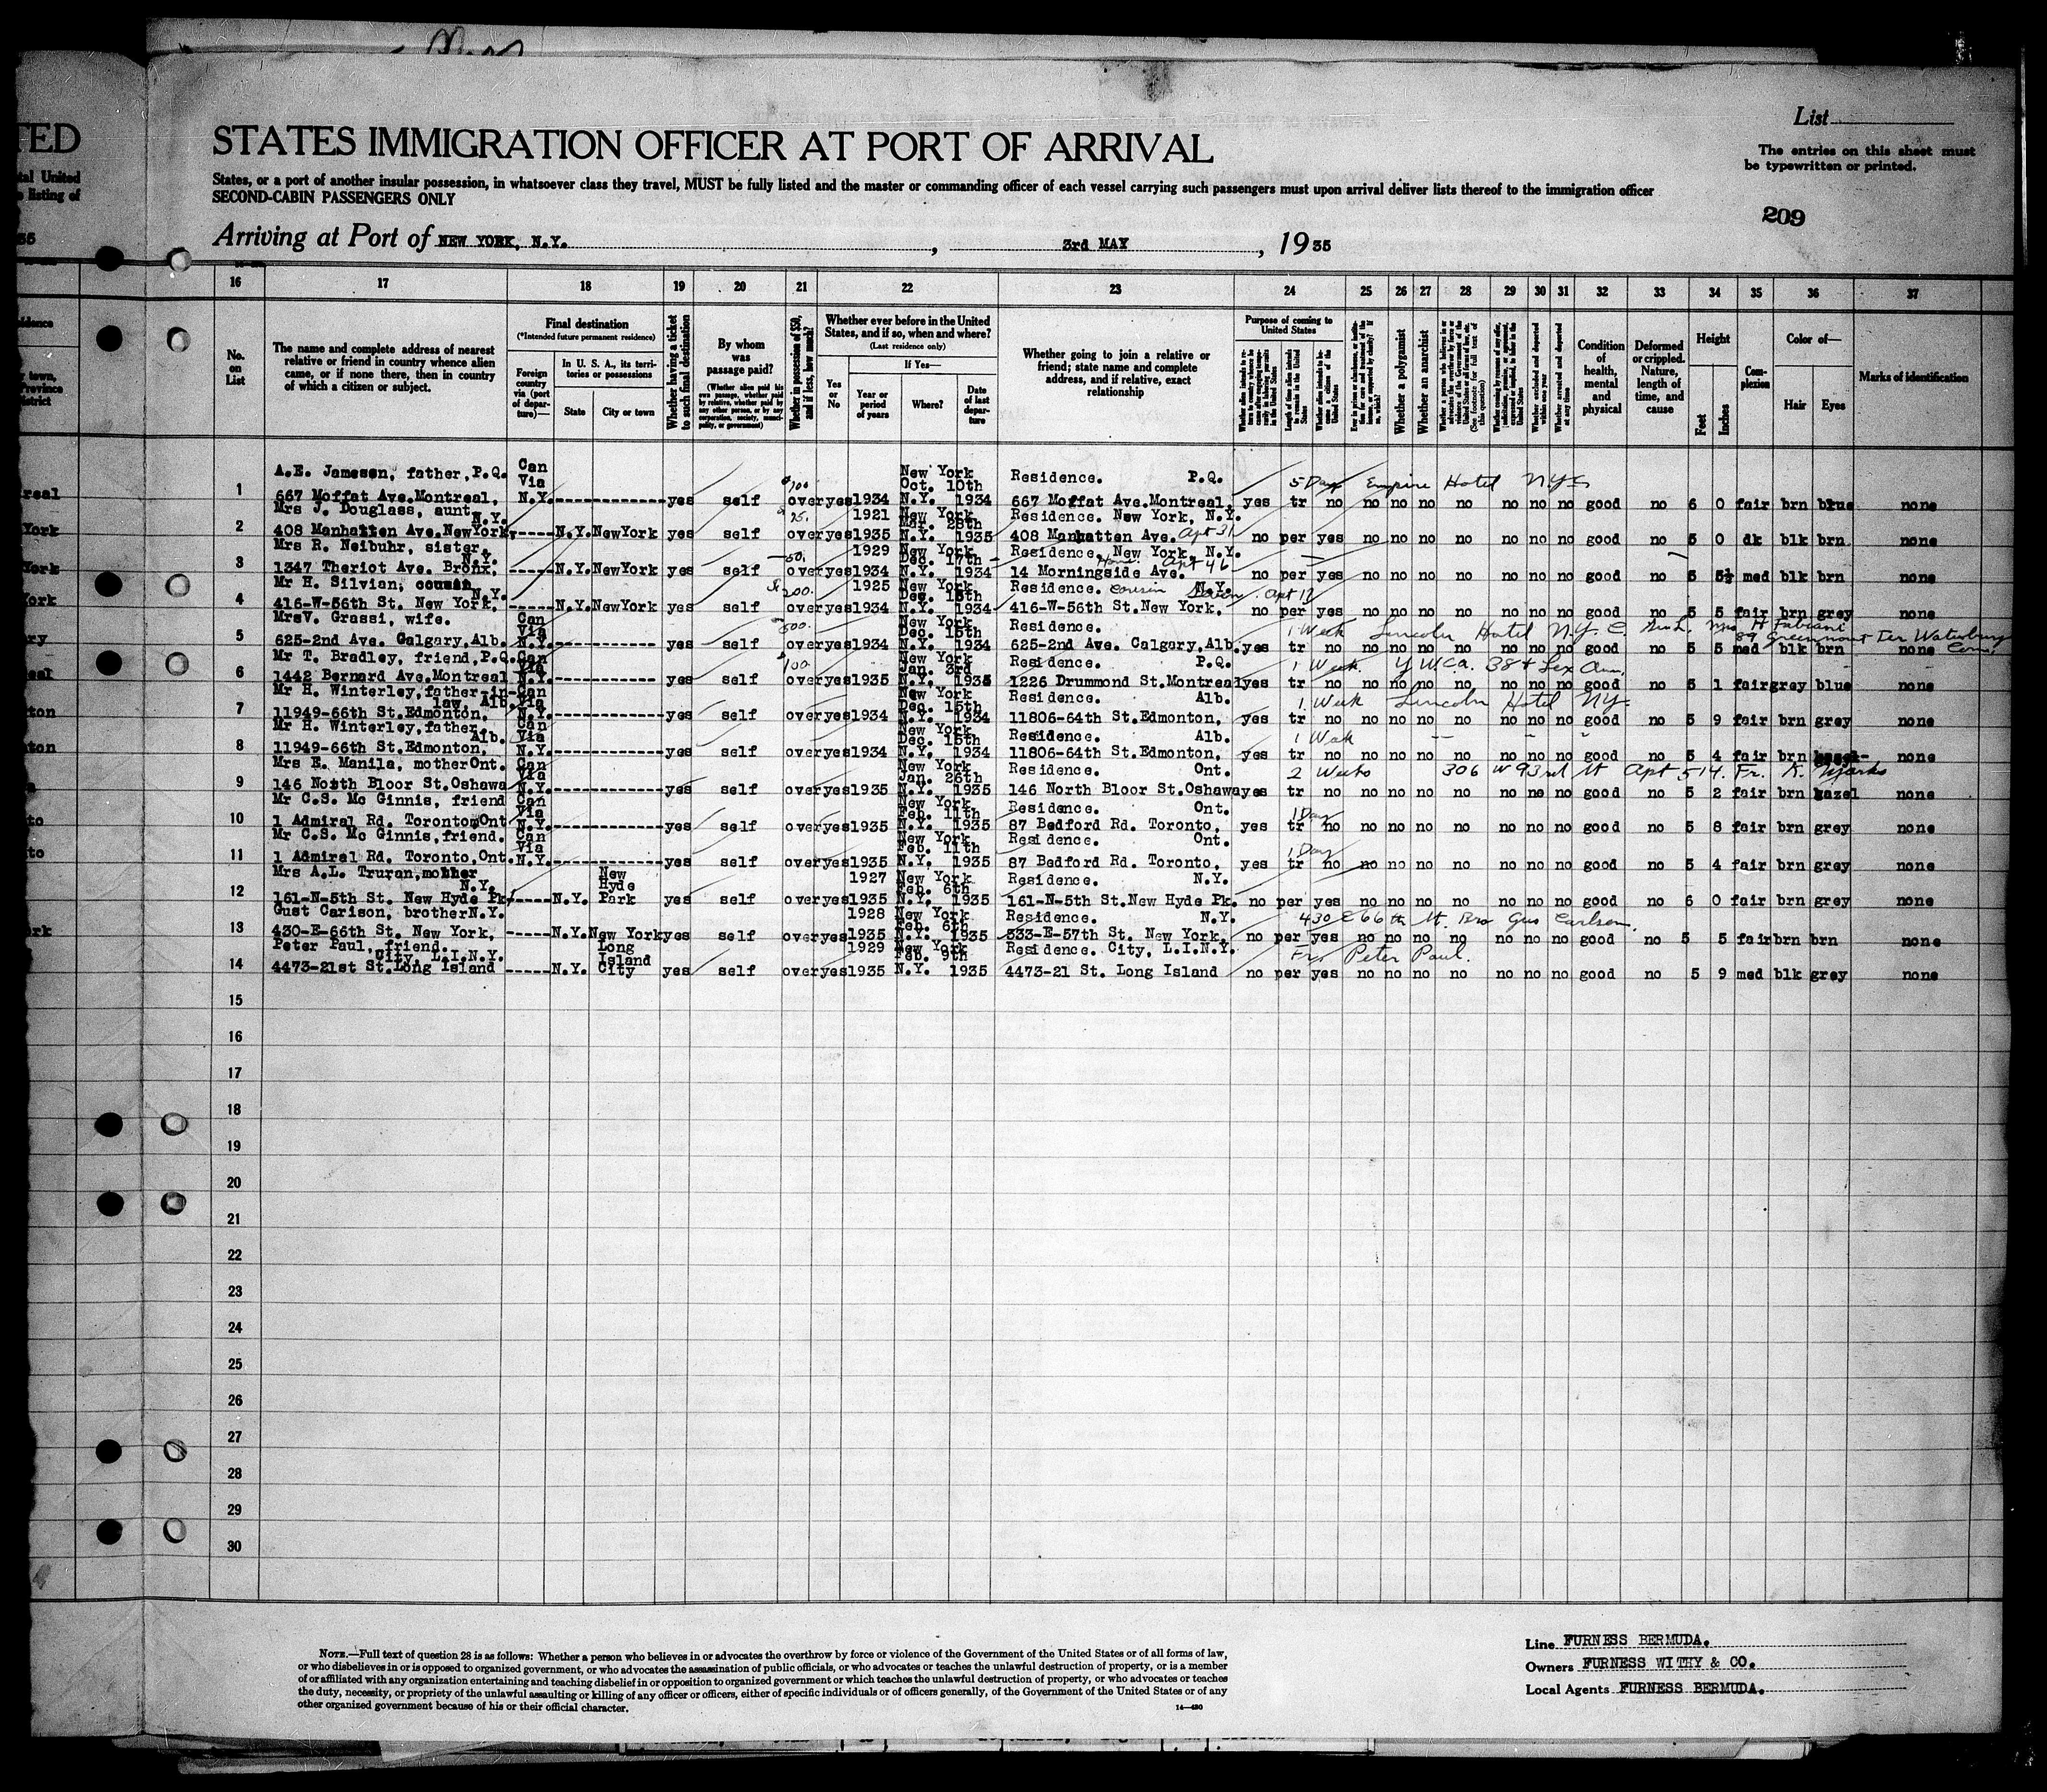 TED
STATES IMMIGRATION OFFICER AT PORT OF ARRIVAL
List
The entries on this sheet must
be typewritten or printed.
tal United
listing of
States, or a port of another insular possession, in whatsoever class they travel, MUST be fully listed and the master or commanding officer of each vessel carrying such passengers must upon arrival deliver lists thereof to the immigration officer
SECOND-CABIN PASSENGERS ONLY
209
35
Arriving at Port of NEW YORK, N.Y., 3rd MAY, 1935
16 17 18 19 20 21 22 23 24 25 26 27 28 29 30 31 32 33 34 35 36 37
No. on List
The name and complete address of nearest relative or friend in country whence alien came, or if none there, then in country of which a citizen or subject.
Final destination
(*Intended future permanent residence)
Foreign country via (port of departure)—
In U. S. A., its territories or possessions
State
City or town
Whether having a ticket to such final destination
By whom was passage paid?
(Whether alien paid his own passage, whether paid by relative, whether paid by any other person, or by any corporation, society, municipality, or government)
Whether in possession of $50, and if less, how much?
Whether ever before in the United States, and if so, when and where?
(Last residence only)
Yes or No
If Yes—
Year or period of years
Where?
Date of last departure
Whether going to join a relative or friend; state name and complete address, and if relative, exact relationship
Purpose of coming to United States
Whether a polygamist
Whether an anarchist
Condition of health, mental and physical
Deformed or crippled. Nature, length of time, and cause
Height
Feet
Inches
Complexion
Color of—
Hair
Eyes
Marks of identification
A.E. Jameson, father, P.Q. Can Via New York Oct. 10th Residence. P.Q. 5 Days Empire Hotel NYC
1 667 Moffat Ave. Montreal, N.Y. yes self over yes 1934 N.Y. 1934 667 Moffat Ave. Montreal yes tr no no no no no no no no good no 6 0 fair brn blue none
Mrs J. Douglass, aunt N.Y. 25. 1921 New York Mar. 28th Residence. New York, N.Y.
2 408 Manhatten Ave. NewYork, N.Y. NewYork yes self over yes 1935 N.Y. 1935 408 Manhatten Ave. Apt 31 no per yes no no no no no no no good no 5 0 dk blk brn none
Mrs R. Neibuhr, sister, N.Y. 50. 1929 New York Dec. 17th Residence. New York, N.Y. Apt 46
3 1347 Theriot Ave. Bronx, N.Y. NewYork yes self over yes 1934 N.Y. 1934 14 Morningside Ave. no per yes no no no no no no no good no 5 5½ med blk brn none
Mr H. Silvian, cousin N.Y. 200. 1925 New York Dec. 15th Residence. cousin N.Y. Apt 12
4 416-W-56th St. New York, N.Y. NewYork yes self over yes 1934 N.Y. 1934 416-W-56th St. New York. no per yes no no no no no no no good no 5 5 fair brn grey none
MrsV. Grassi, wife. Can Via 500. New York Dec. 15th Residence. 1 Week Lincoln Hotel N.Y.C. Mrs H Fabiani 89 Greenmount Ter Waterbury Conn.
5 625-2nd Ave. Calgary, Alb. N.Y. yes self over yes 1934 N.Y. 1934 625-2nd Ave. Calgary, Alb. yes tr no no no no no no no no good no 5 5 med blk brn none
Mr T. Bradley, friend, P.Q. Can Via 100. New York Jan. 3rd Residence. P.Q. 1 Week YWCA. 38 & Lex Ave.
6 1442 Bernard Ave. Montreal N.Y. yes self over yes 1935 N.Y. 1935 1226 Drummond St. Montreal yes tr no no no no no no no no good no 5 1 fair grey blue none
Mr H. Winterley, father-in-law, Alb. Can Via New York Dec. 15th Residence. Alb. 1 Week Lincoln Hotel NY
7 11949-66th St. Edmonton, N.Y. yes self over yes 1934 N.Y. 1934 11806-64th St. Edmonton, yes tr no no no no no no no no good no 5 9 fair brn grey none
Mr H. Winterley, father, Alb. Can Via New York Dec. 15th Residence. Alb. 1 Week
8 11949-66th St. Edmonton, N.Y. yes self over yes 1934 N.Y. 1934 11806-64th St. Edmonton, yes tr no no no no no no no no good no 5 4 fair brn none
Mrs E. Manila, mother Ont. Can Via New York Jan. 26th Residence. Ont. 2 Weeks 306 W 93rd St Apt 514. Fr. K.
9 146 North Bloor St. Oshawa N.Y. yes self over yes 1935 N.Y. 1935 146 North Bloor St. Oshawa yes tr no no no no no no no no good no 5 2 fair brn hazel none
Mr C.S. Mc Ginnis, friend Can Via New York Feb. 11th Residence. Ont. 1 Day
10 1 Admiral Rd. Toronto, Ont N.Y. yes self over yes 1935 N.Y. 1935 87 Bedford Rd. Toronto, yes tr no no no no no no no no good no 5 8 fair brn grey none
Mr C.S. Mc Ginnis, friend. Can Via New York Feb. 11th Residence. Ont. 1 Day
11 1 Admiral Rd. Toronto, Ont. N.Y. yes self over yes 1935 N.Y. 1935 87 Bedford Rd. Toronto. yes tr no no no no no no no no good no 5 4 fair brn grey none
Mrs A.L. Truran, mother N.Y. New Hyde 1927 New York Feb. 6th Residence. N.Y.
12 161-N-5th St. New Hyde Pk. N.Y. Park yes self over yes 1935 N.Y. 1935 161-N-5th St. New Hyde Pk. no per yes no no no no no no no good no 6 0 fair brn grey none
Gust Carlson, brother N.Y. 1928 New York Feb. 6th Residence. N.Y. 430 E 66th St. Bro Gus Carlson.
13 430-E-66th St. New York, N.Y. New York yes self over yes 1935 N.Y. 1935 333-E-57th St. New York. no per yes no no no no no no no good no 5 5 fair brn brn none
Peter Paul, friend. City, L.I.N.Y. Long Island 1929 New York Feb. 9th Residence. City, L.I.N.Y. Fr. Peter Paul.
14 4473-21st St. Long Island N.Y. City yes self over yes 1935 N.Y. 1935 4473-21 St. Long Island no per yes no no no no no no no good no 5 9 med blk grey none
15
16
17
18
19
20
21
22
23
24
25
26
27
28
29
30
NOTE.—Full text of question 28 is as follows: Whether a person who believes in or advocates the overthrow by force or violence of the Government of the United States or of all forms of law,
or who disbelieves in or is opposed to organized government, or who advocates the assassination of public officials, or who advocates or teaches the unlawful destruction of property, or is a member
of or affiliated with any organization entertaining and teaching disbelief in or opposition to organized government or which teaches the unlawful destruction of property, or who advocates or teaches
the duty, necessity, or propriety of the unlawful assaulting or killing of any officer or officers, either of specific individuals or of officers generally, of the Government of the United States or of any
other organized government because of his or their official character.
14—480
Line FURNESS BERMUDA.
Owners FURNESS WITHY & CO.
Local Agents FURNESS BERMUDA.